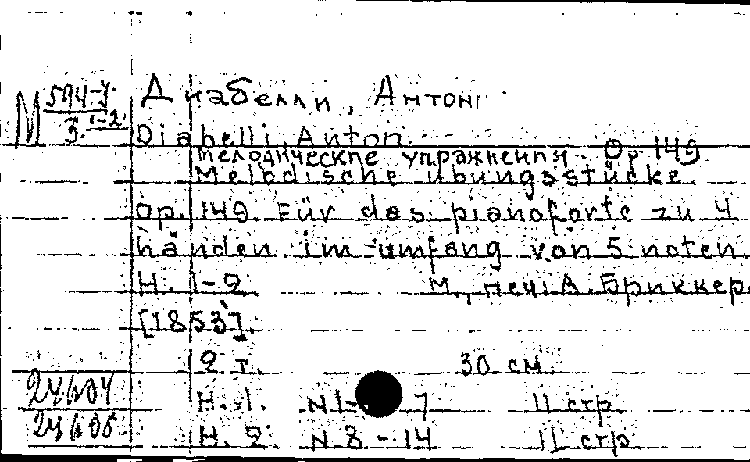 М 594-J
3 1-2
Диабелли, Антон
Diabelli, Anton
Мелодические упражнения. Op 149
Melodische übungsstücke.
Op. 149. Für das pianoforte zu 4
händen im umfang von 5 noten
H. 1-2 М., печ. А. Бриккер
[1853].
2 т. 30 см.
24604 H. 1. N 1- 7 11 стр.
24605 H. 2. N 8 - 14 11 стр.